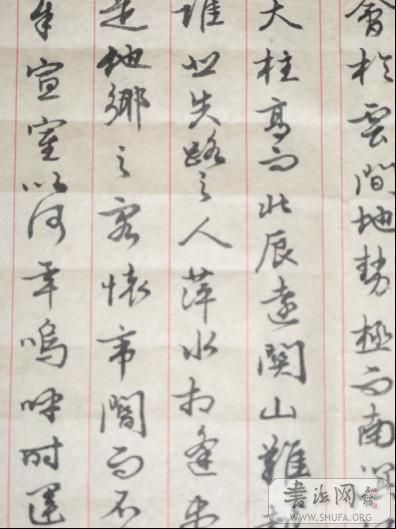 會於雲間地勢極而南溟
天柱高而北辰遠關山難越
誰悲失路之人萍水相逢盡
是他鄉之客懷帝閽而不
奉宣室以何年嗚呼時運
書法网
WWW.SHUFA.ORG